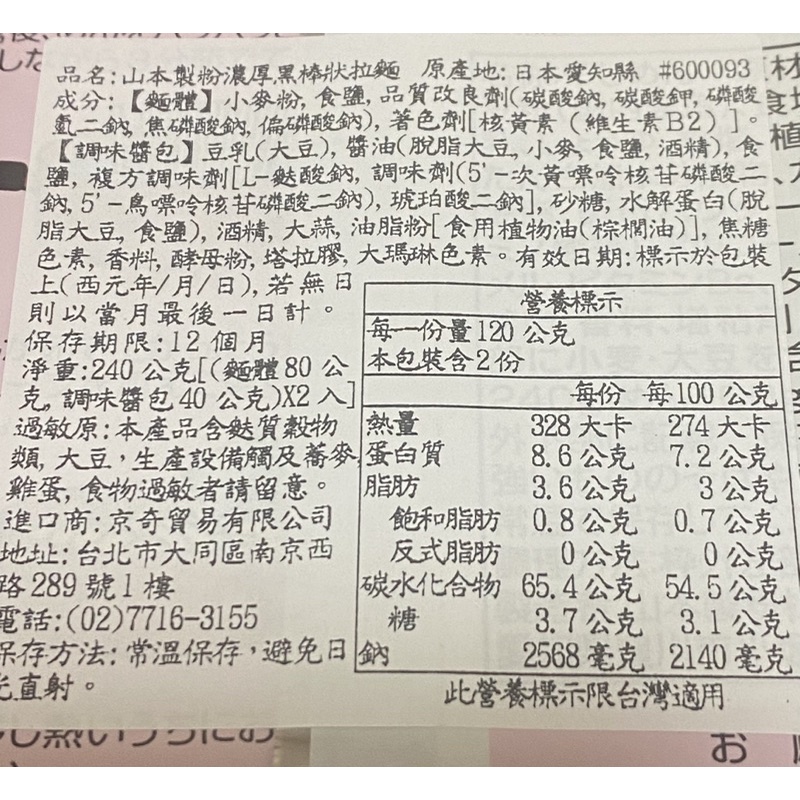 品名:山本製粉濃厚黑棒狀拉麵 原產地:日本愛知縣 #600093
成分:【麵體】小麥粉, 食鹽, 品質改良劑(碳酸鈉, 碳酸鉀, 磷酸
氫二鈉, 焦磷酸鈉, 偏磷酸鈉), 著色劑[核黃素(維生素B2)]。
【調味醬包】豆乳(大豆), 醬油(脫脂大豆, 小麥, 食鹽, 酒精), 食
鹽, 複方調味劑[L-麩酸鈉, 調味劑(5'-次黃嘌呤核苷磷酸二
鈉, 5'-鳥嘌呤核苷磷酸二鈉), 琥珀酸二鈉], 砂糖, 水解蛋白(脫
脂大豆, 食鹽), 酒精, 大蒜, 油脂粉[食用植物油(棕櫚油)], 焦糖
色素, 香料, 酵母粉, 塔拉膠, 大瑪琳色素。有效日期:標示於包裝
上(西元年/月/日), 若無日
則以當月最後一日計。
保存期限:12個月
淨重:240公克[(麵體80公
克, 調味醬包40公克)X2入]
過敏原:本產品含麩質穀物
類, 大豆，生產設備觸及蕎麥,
雞蛋, 食物過敏者請留意。
進口商:京奇貿易有限公司
地址:台北市大同區南京西
路289號1樓
電話:(02)7716-3155
保存方法:常溫保存，避免日
光直射。
營養標示
每一份量120公克
本包裝含2份
每份 每100公克
熱量 328大卡 274大卡
蛋白質 8.6公克 7.2公克
脂肪 3.6公克 3公克
飽和脂肪 0.8公克 0.7公克
反式脂肪 0公克 0公克
碳水化合物 65.4公克 54.5公克
糖 3.7公克 3.1公克
鈉 2568毫克 2140毫克
此營養標示限台灣適用